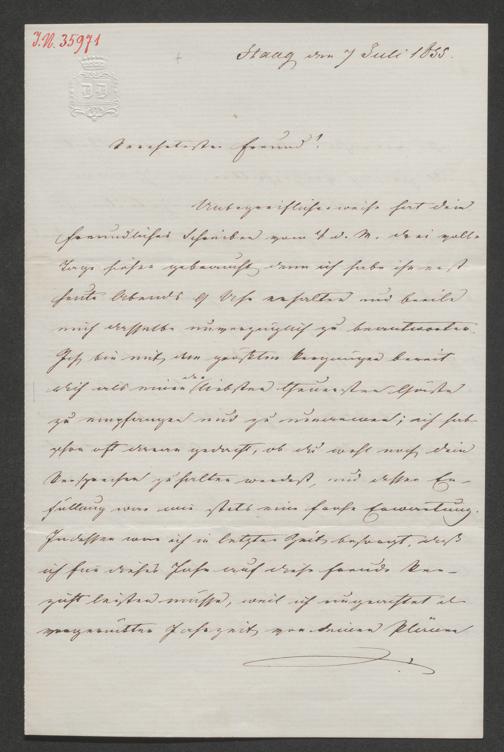 I.N. 35971
Haag den 7 Juli 1855.
Verehrtester Freund!
Unbegreiflicherweise hat dein
freundliches Schreiben vom 4 d. M. drei volle
Tage hieher gebraucht, denn ich habe ihn erst
heute Abends 9 Uhr erhalten und beeile
mich dasselbe unverzüglich zu beantworten.
Ich bin mit dem größten Vergnügen bereit
dich als einen der liebsten theuersten Gäste
zu empfangen und zu umarmen; ich habe
schon oft daran gedacht, ob du wohl noch dein
Versprechen zu halten werdest, und dessen Er-
füllung war mir stets eine frohe Erwartung.
Indessen war ich in letzter Zeit besorgt, daß
ich für dieses Jahr auf diese Freude Ver-
zicht leisten müsse, weil ich ungeachtet der
vorgerückten Jahreszeit von deinen Plänen